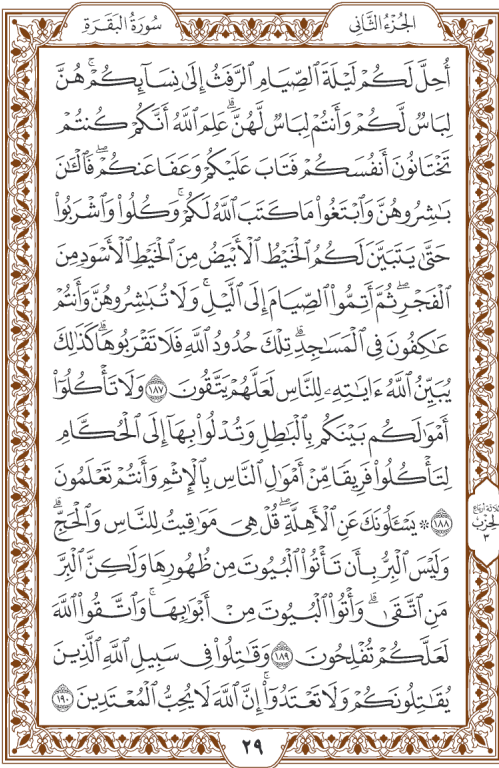 الجُزْءُ الثَّانِي
سُورَةُ البَقَرَةِ
أُحِلَّ لَكُمْ لَيْلَةَ ٱلصِّيَامِ ٱلرَّفَثُ إِلَىٰ نِسَآئِكُمْۚ هُنَّ
لِبَاسٌ لَّكُمْ وَأَنتُمْ لِبَاسٌ لَّهُنَّۗ عَلِمَ ٱللَّهُ أَنَّكُمْ كُنتُمْ
تَخْتَانُونَ أَنفُسَكُمْ فَتَابَ عَلَيْكُمْ وَعَفَا عَنكُمْۖ فَٱلْـَٰٔنَ
بَٰشِرُوهُنَّ وَٱبْتَغُوا۟ مَا كَتَبَ ٱللَّهُ لَكُمْۚ وَكُلُوا۟ وَٱشْرَبُوا۟
حَتَّىٰ يَتَبَيَّنَ لَكُمُ ٱلْخَيْطُ ٱلْأَبْيَضُ مِنَ ٱلْخَيْطِ ٱلْأَسْوَدِ مِنَ
ٱلْفَجْرِۖ ثُمَّ أَتِمُّوا۟ ٱلصِّيَامَ إِلَى ٱلَّيْلِۚ وَلَا تُبَٰشِرُوهُنَّ وَأَنتُمْ
عَٰكِفُونَ فِى ٱلْمَسَٰجِدِۗ تِلْكَ حُدُودُ ٱللَّهِ فَلَا تَقْرَبُوهَاۗ كَذَٰلِكَ
يُبَيِّنُ ٱللَّهُ ءَايَٰتِهِۦ لِلنَّاسِ لَعَلَّهُمْ يَتَّقُونَ ١٨٧ وَلَا تَأْكُلُوٓا۟
أَمْوَٰلَكُم بَيْنَكُم بِٱلْبَٰطِلِ وَتُدْلُوا۟ بِهَآ إِلَى ٱلْحُكَّامِ
لِتَأْكُلُوا۟ فَرِيقًا مِّنْ أَمْوَٰلِ ٱلنَّاسِ بِٱلْإِثْمِ وَأَنتُمْ تَعْلَمُونَ
١٨٨ ۞ يَسْـَٔلُونَكَ عَنِ ٱلْأَهِلَّةِۖ قُلْ هِىَ مَوَٰقِيتُ لِلنَّاسِ وَٱلْحَجِّۗ
وَلَيْسَ ٱلْبِرُّ بِأَن تَأْتُوا۟ ٱلْبُيُوتَ مِن ظُهُورِهَا وَلَٰكِنَّ ٱلْبِرَّ
مَنِ ٱتَّقَىٰۗ وَأْتُوا۟ ٱلْبُيُوتَ مِنْ أَبْوَٰبِهَاۚ وَٱتَّقُوا۟ ٱللَّهَ
لَعَلَّكُمْ تُفْلِحُونَ ١٨٩ وَقَٰتِلُوا۟ فِى سَبِيلِ ٱللَّهِ ٱلَّذِينَ
يُقَٰتِلُونَكُمْ وَلَا تَعْتَدُوٓا۟ۚ إِنَّ ٱللَّهَ لَا يُحِبُّ ٱلْمُعْتَدِينَ ١٩٠
ثلاثة أرباع
الحزب
٣
٢٩